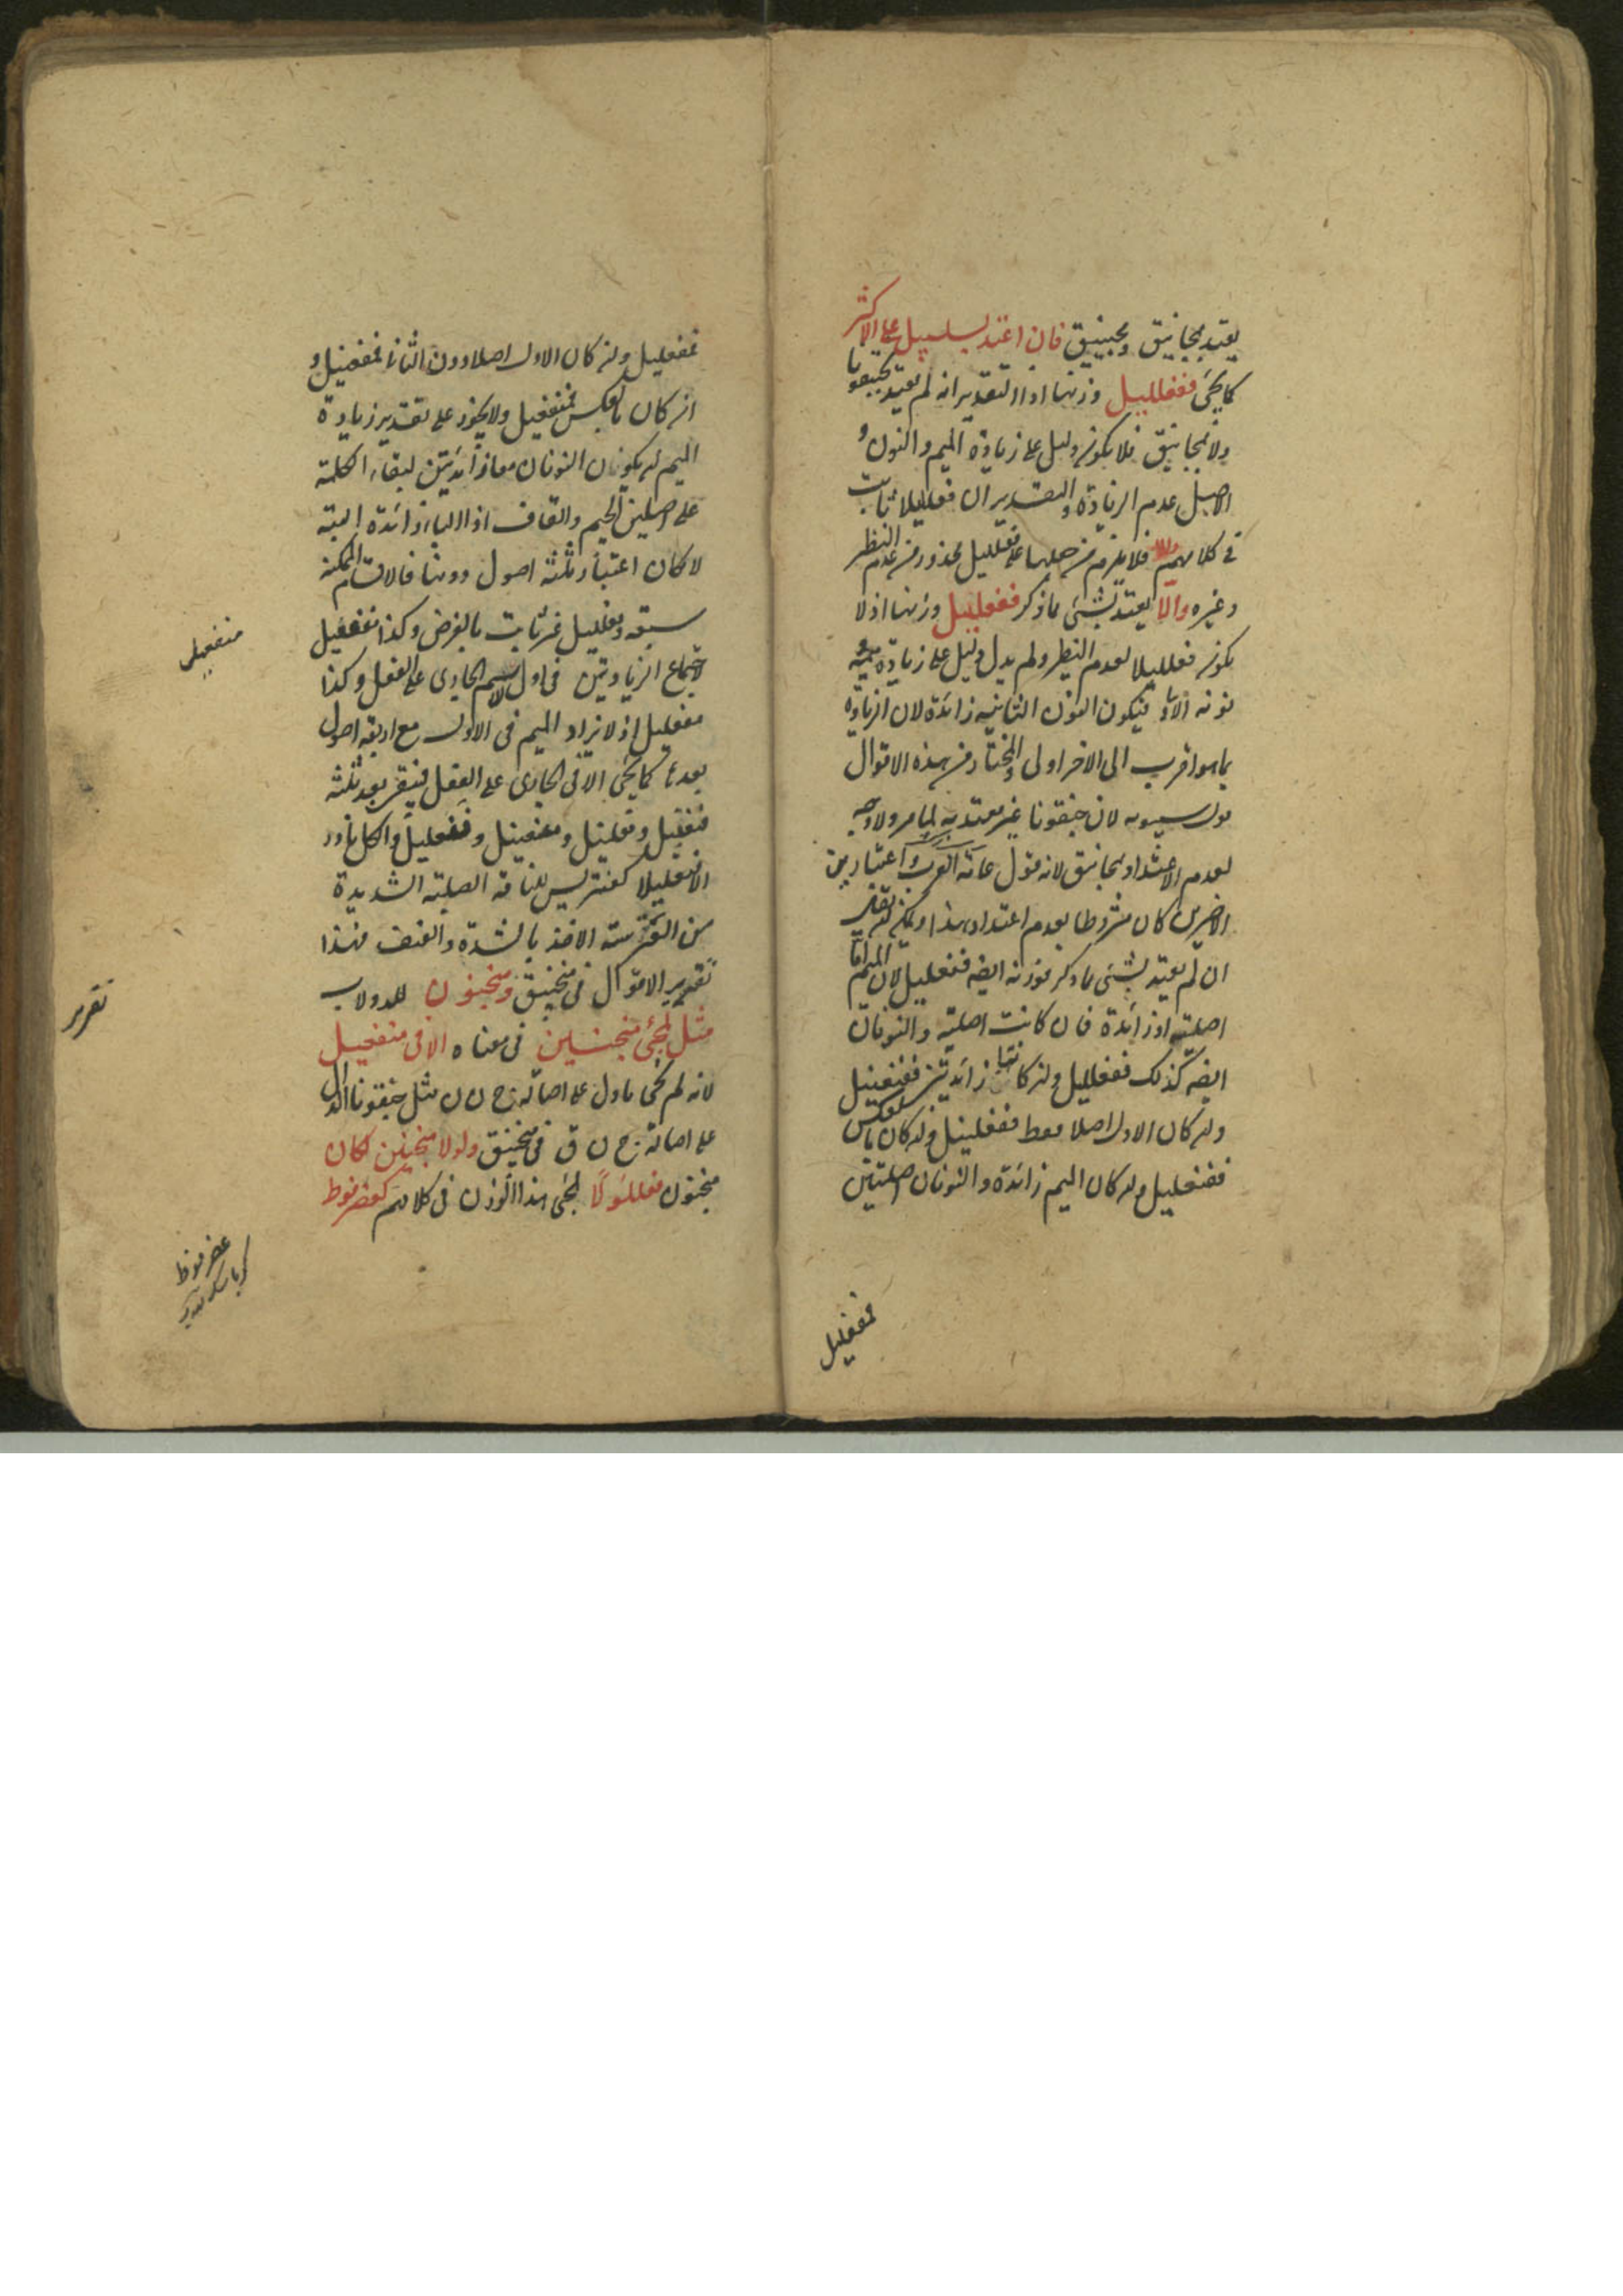 يعتد بمجانيق ومجينيق فان اعتد بسلسبيل على الاكثر
كما يجئ ففعلليل وزنها اذ التقدير انه لم يعتد بجنقونا
ولا بمجانيق فلا يكون دليل على زيادة الميم والنون و
الاصل عدم الزيادة والتقدير ان فعلليلا ثابت
في كلامهم فلا يلزم من حملها على فعلليل محذور من عدم النظير
وغيره والا يعتد بشئ مما ذكر ففعلنيل وزنها اذ لا
يكون فعلليلا لعدم النظير ولم يدل دليل على زيادة ميمه
نونه الاولى فيكون النون الثانية زائدة لان الزيادة
بما هو اقرب الى الاخر اولى والمختار من هذه الاقوال
قول سيبويه لان جنقونا غير معتد به لما مر ولا وجه
لعدم الاعتداد بمجانيق لانه قول عامة العرب واعتبار
الاخيرين كان مشروطا بعدم اعتداد هذا ويمكن ان يقال
ان لم يعتد بشئ مما ذكر فوزنه ايضا فنعليل لان الميم اما
اصلية او زائدة فان كانت اصلية والنونان
ايضا كذلك ففعلليل وان كانتا زائدتين ففنعنيل
وان كان الاول اصلا فقط ففعلنيل وان كان بالعكس
ففنعليل وان كان الميم زائدة والنونان اصليتين
فمفعليل
فمفعليل وان كان الاول اصلا دون الثاني فمفعنيل و
ان كان بالعكس فمنفعيل ولا يجوز على تقدير زيادة
الميم ان يكون النونان معا زائدتين لبقاء الكلمة
على اصلين الجيم والقاف اذ الياء زائدة البتة
لا كان اعتبار ثلثة اصول دونها فالاقسام الممكنة
سبعة وفعلليل غير ثابت بالفرض وكذا منفعيل
لاجتماع الزيادتين في اول الاسم الجاري على الفعل وكذا
مفعليل اذ لا يزاد الميم في الاول مع اربعة اصول
بعدها كما يجئ الا في الجاري على الفعل فبقى بعد ثلثة
فنعليل وفعلنيل ومفعنيل وفنعنيل والكل نادر
الا فنعليلا كعنتريس للناقة الصلبة الشديدة
من العترسة الاخذ بالشدة والعنف فهذا
تقرير الاقوال في منجنيق ومنجنون للدولاب
مثل لمجئ منجنين في معناه الا في منفعيل
لانه لم يجئ ما دل على اصالة ج ن ن مثل جنقونا الدال
على اصالة ج ن ق في منجنيق ولولا منجنين لكان
منجنون فعللولا لمجئ هذا الوزن في كلامهم كعضرفوط
منفعيل
تقرير
عضرفوط